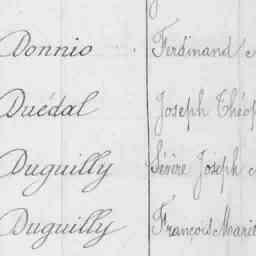 Donnio Ferdinand
Duédal Joseph Théop
Duguilly Sévère Joseph
Duguilly François Marie